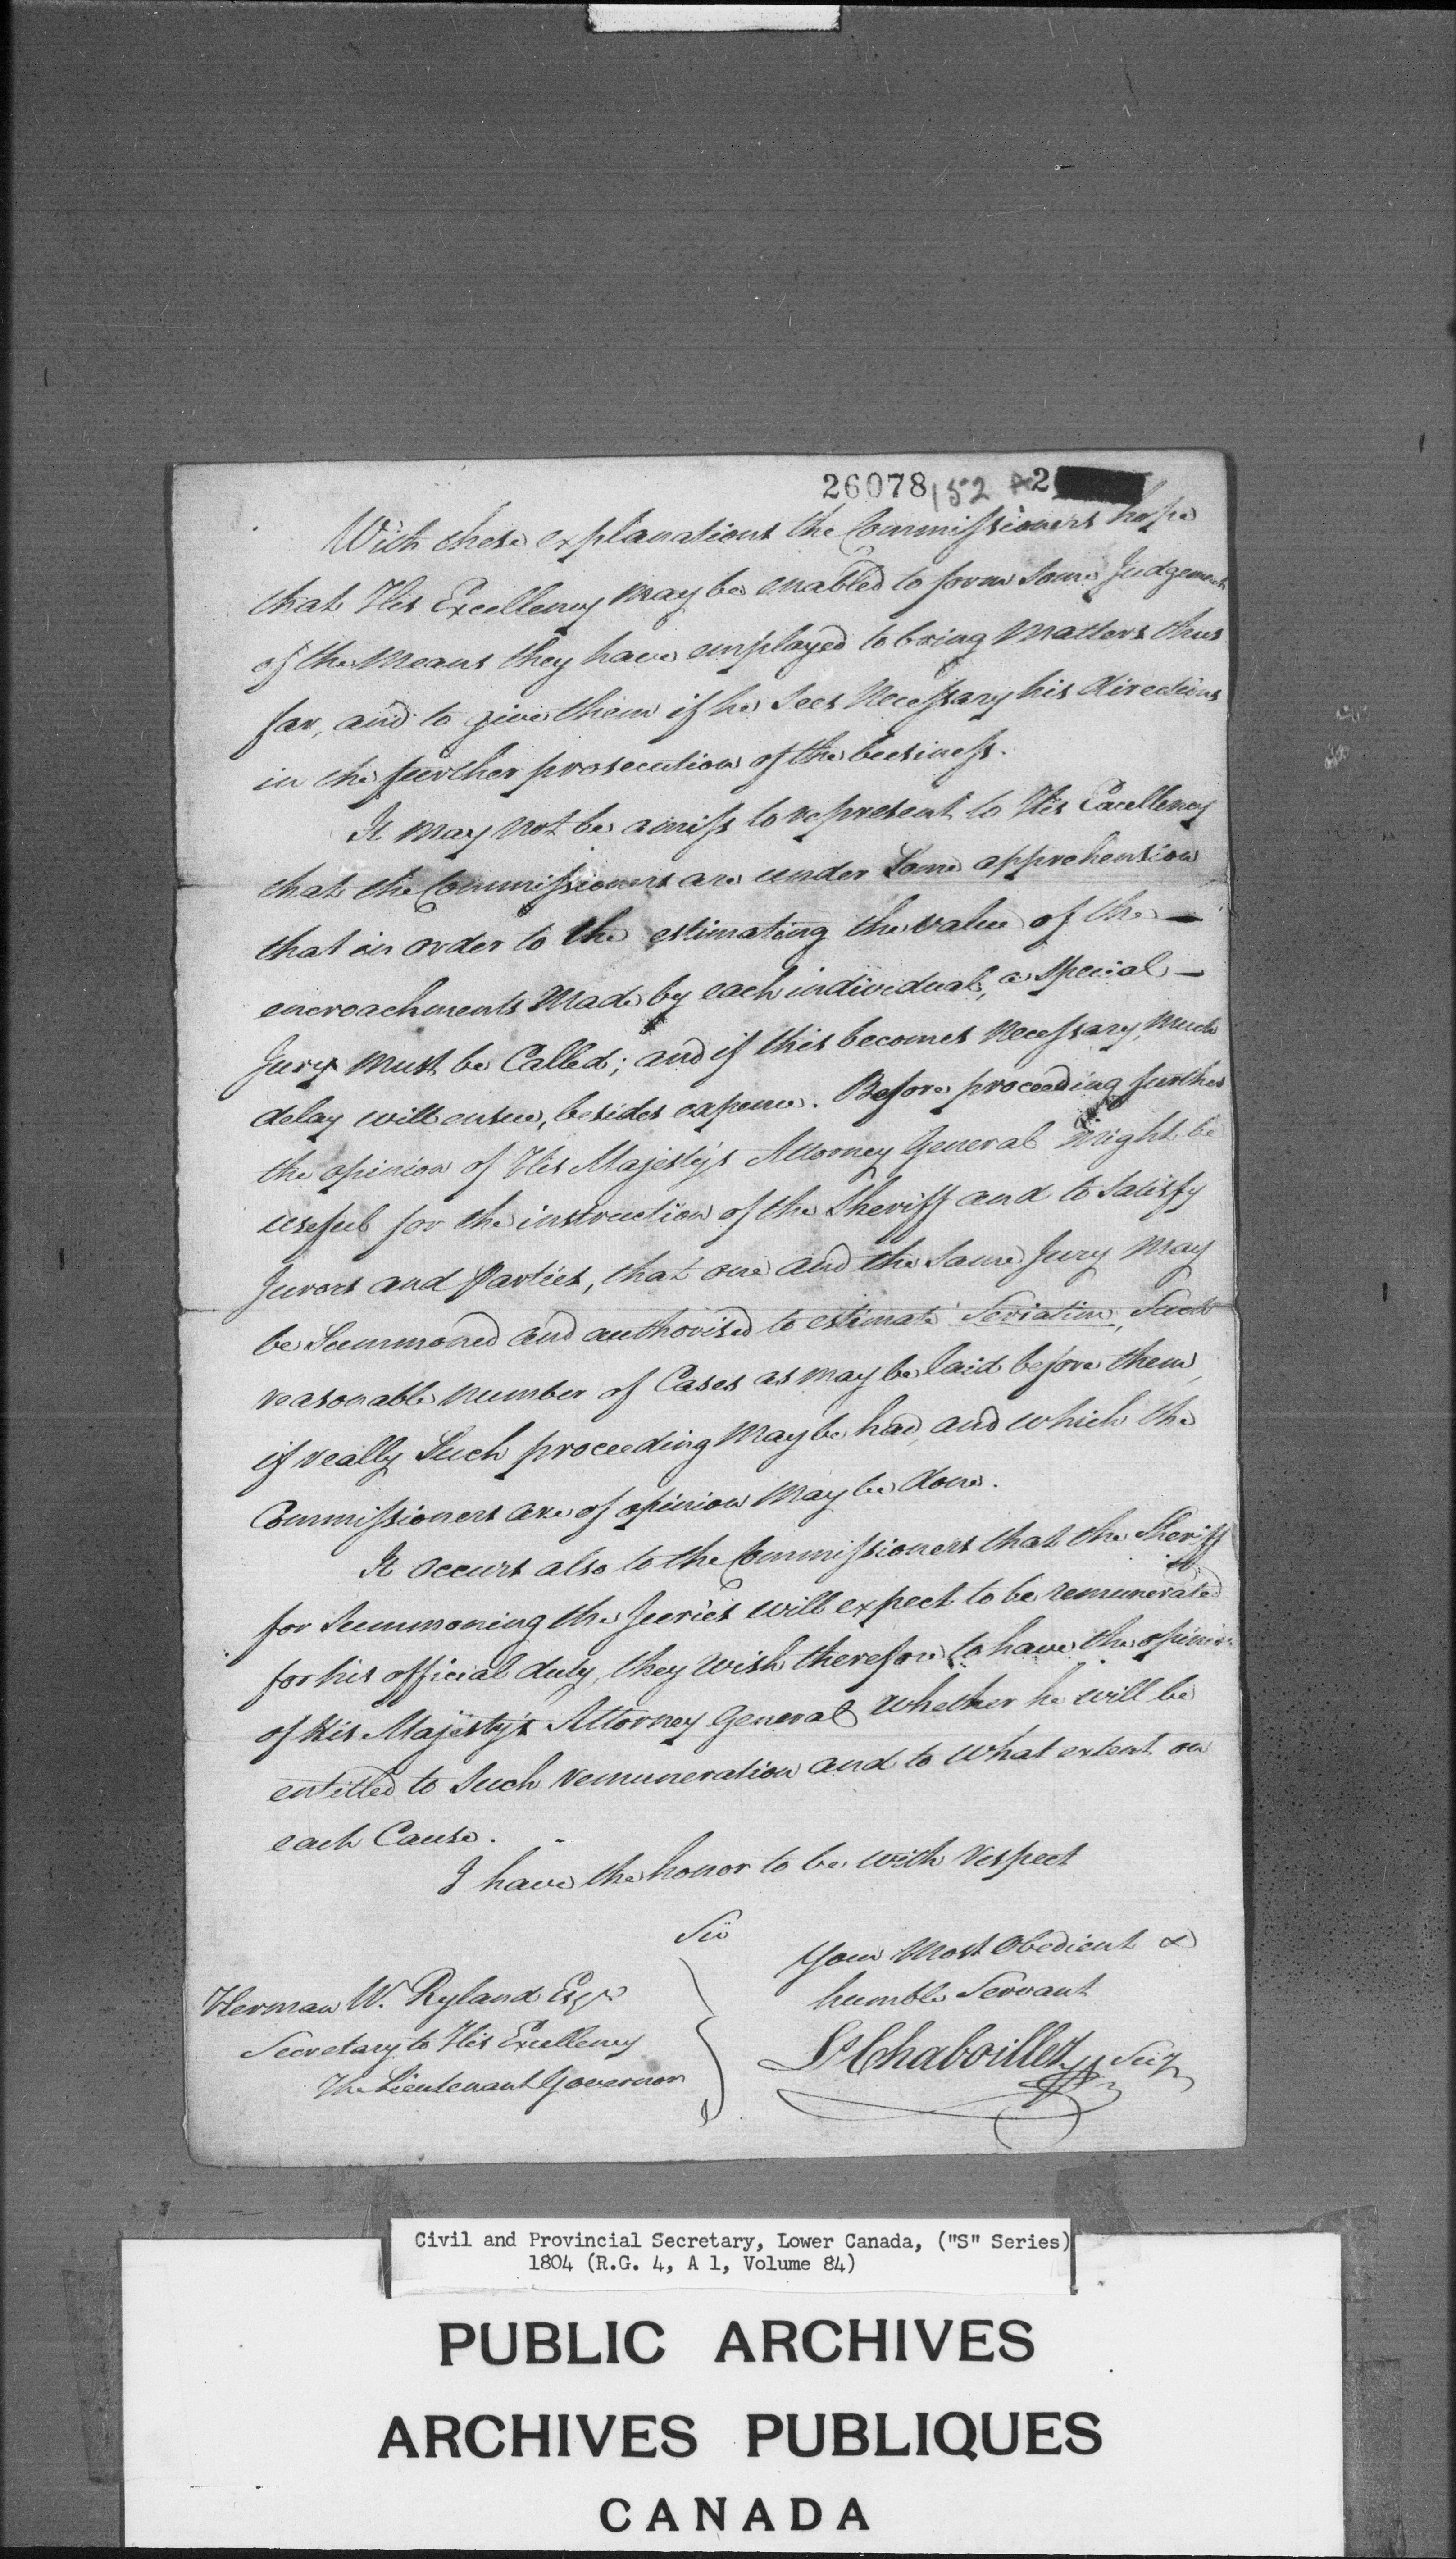 26078 152 2
With these explanations the Commissioners hope
that His Excellency may be enabled to form some Judgement
of the Means they have employed to bring Matters thus
far, and to give them if he sees Necessary his directions
in the further prosecution of the business.
It may not be amiss to represent to His Excellency
that the Commissioners are under some apprehension
that in order to the estimating the value of the —
encroachments Made by each individual, a special —
Jury must be Called; and if this becomes Necessary, much
delay will ensue, besides expence. Before proceeding further
the opinion of His Majesty's Attorney General might be
useful for the instruction of the Sheriff and to satisfy
Jurors and Parties, that one and the same Jury May
be Summoned and authorised to estimate Seriatim, Such
reasonable number of Cases as may be laid before them,
if really Such proceeding May be had, and which the
Commissioners are of opinion May be done.
It occurs also to the Commissioners that the Sheriff
for Summoning the Juries will expect to be remunerated
for his official duty, they wish therefore to have the opinion
of His Majesty's Attorney General whether he will be
entitled to Such remuneration and to what extent on
each Cause.
I have the honor to be with respect
Sir
Your Most Obedient &
humble Servant
Herman W. Ryland Esqr.
Secretary to His Excellency
The Lieutenant Governor
Ls Chaboillez Secy
Civil and Provincial Secretary, Lower Canada, ("S" Series)
1804 (R.G. 4, A 1, Volume 84)
PUBLIC ARCHIVES
ARCHIVES PUBLIQUES
CANADA